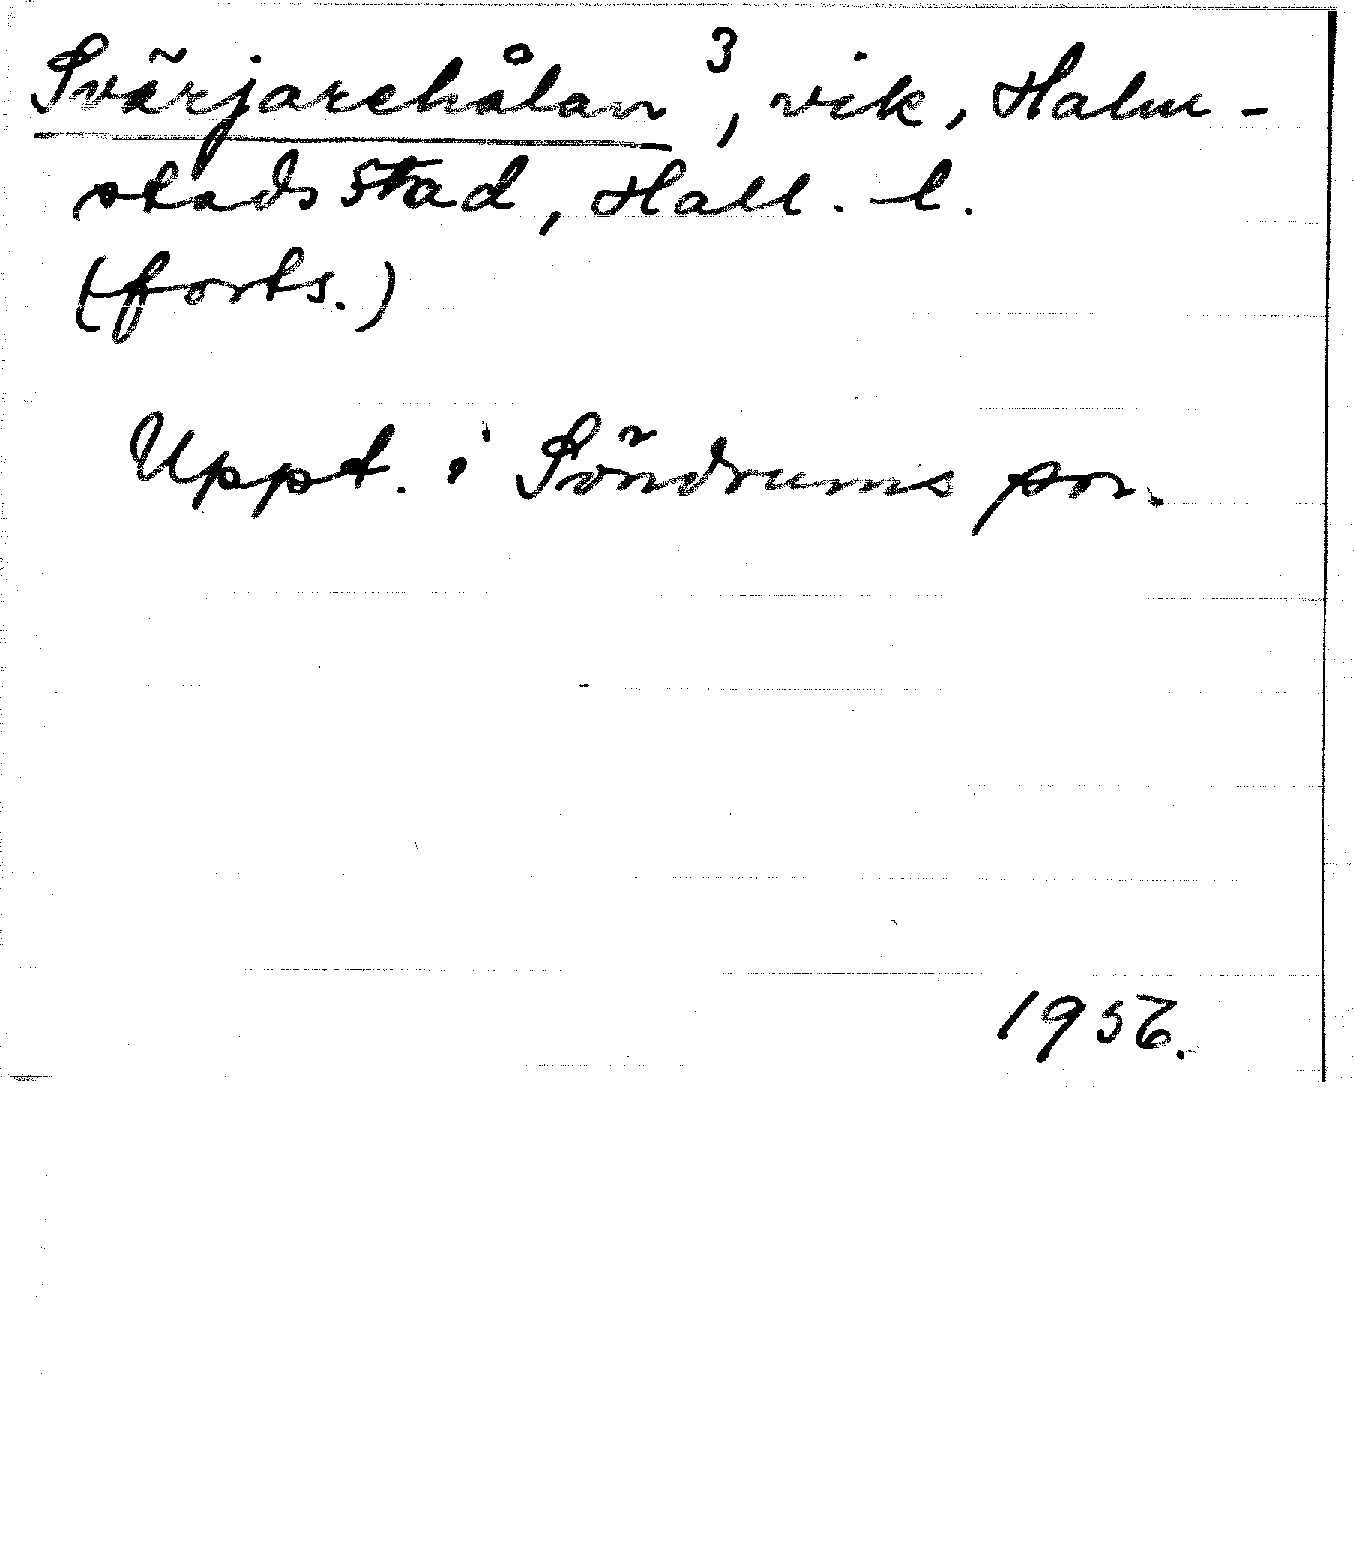 Svärjarehålan ³, vik, Halm-
stads stad, Hall. l.
(forts.)
Uppt. i Söndrums sn.
1956.